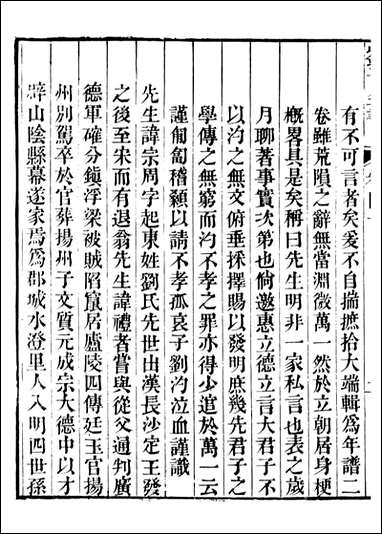 有不可言者矣爰不自揣摭拾大端輯爲年譜二
卷雖荒隕之辭無當淵微萬一然於立朝居身梗
槪畧具是矣稱曰先生明非一家私言也表之歲
月聊著事實次第也倘邀惠立德立言大君子不
以汋之無文俯垂採擇賜以發明庶幾先君子之
學傳之無窮而汋不孝之罪亦得少逭於萬一云
謹匍匐稽顙以請不孝孤哀子劉汋泣血謹識
先生諱宗周字起東姓劉氏先世出漢長沙定王發
之後至宋而有退翁先生諱禮者嘗與從父通判廣
德軍確分鎭浮梁被賊陷竄居廬陵四傳廷玉官揚
州別駕卒於官葬揚州子文質元成宗大德中以才
辟山陰縣幕遂家焉爲郡城水澄里人入明四世孫